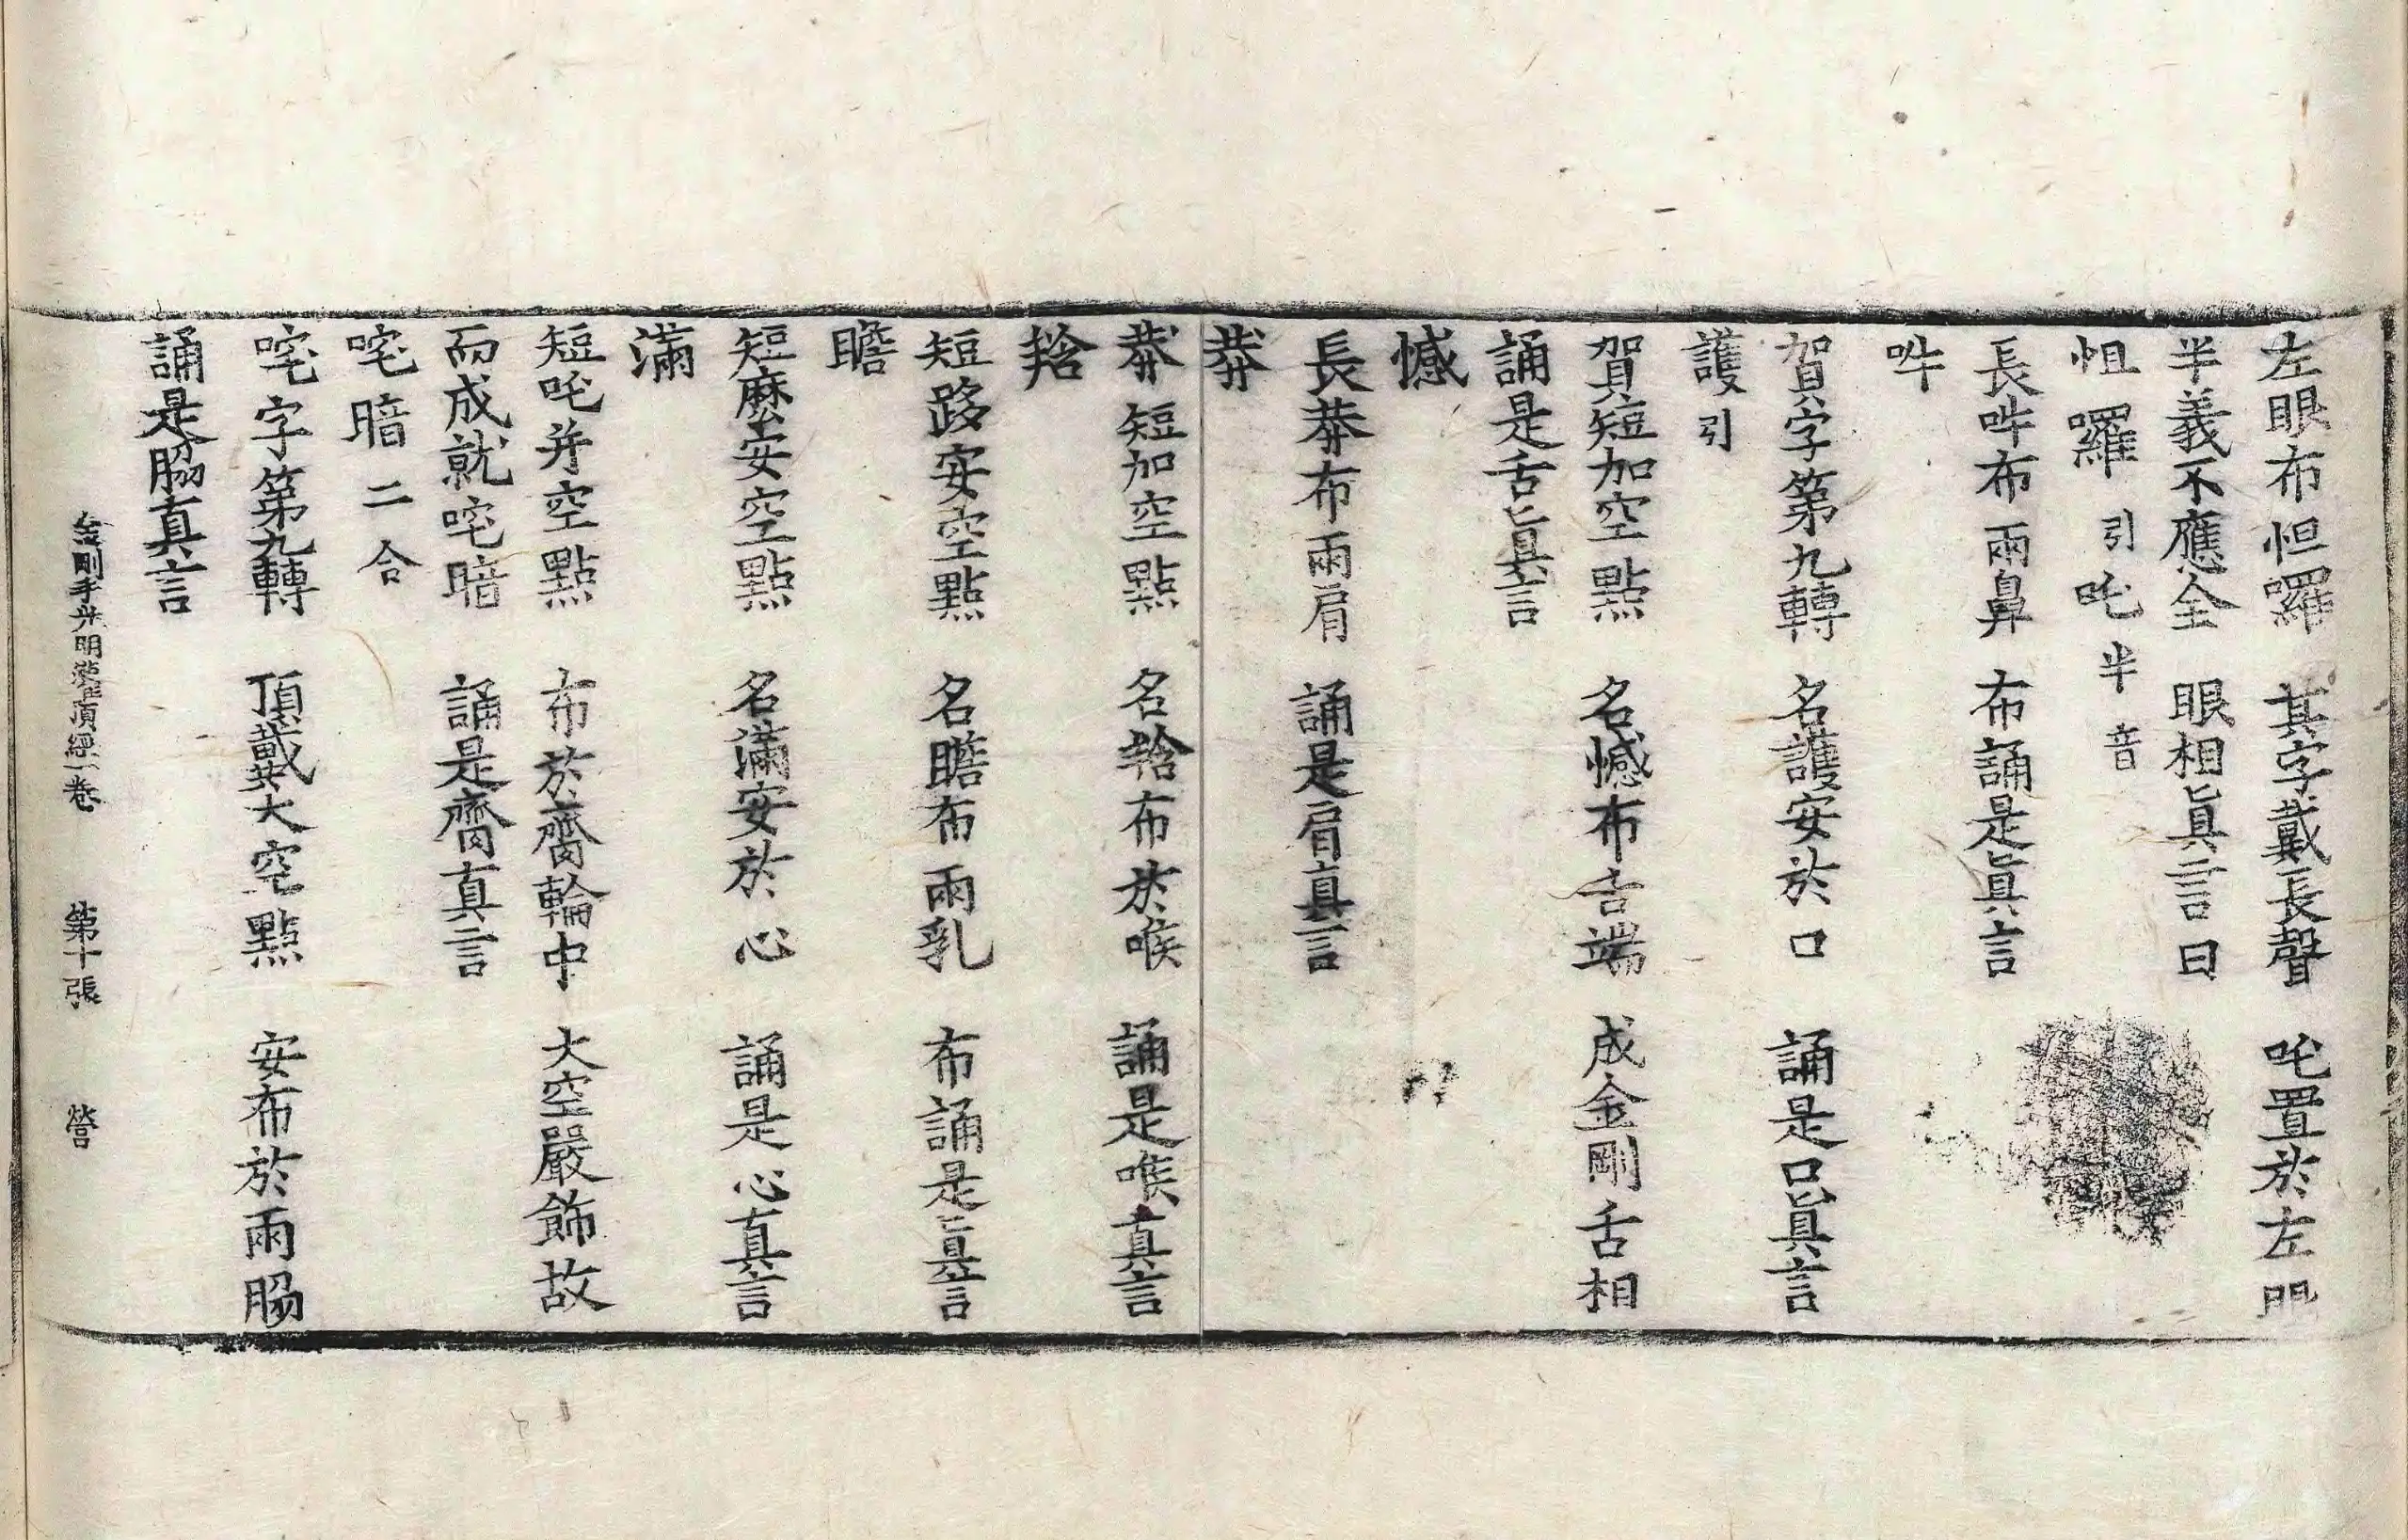 左眼布怛囉　其字戴長聲　吒置於左眼
半義不應全　眼相眞言曰
怛囉引吒半音
長吽布兩鼻　布誦是眞言
吽
賀字第九轉　名護安於口　誦是口眞言
護引
賀短加空點　名憾布舌端　成金剛舌相
誦是舌眞言
憾
長莽布兩肩　誦是肩真言
莽
莽短加空點　名㹂布於喉　誦是喉真言
㹂
短路安空點　名瞻布兩乳　布誦是真言
瞻
短麽安空點　名滿安於心　誦是心真言
滿
短吒并空點　布於齎輪中　大空嚴飾故
而成就咤暗　誦是齎真言
咤暗二合
咤字第九轉　頂戴大空點　安布於兩脇
誦是脇真言
金剛手光明灌頂經一卷　第十張　營